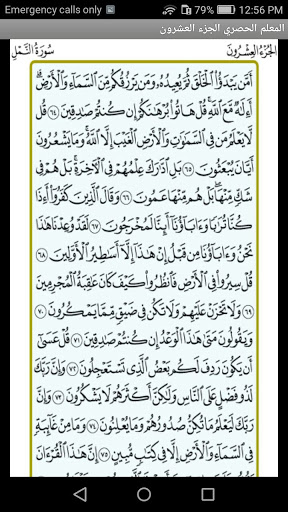 Emergency calls only 12:56 PM
المعلم الحصري الجزء العشرون
الجزء العشرون سورة النمل
أَمَّن يَبْدَؤُا۟ ٱلْخَلْقَ ثُمَّ يُعِيدُهُۥ وَمَن يَرْزُقُكُم مِّنَ ٱلسَّمَآءِ وَٱلْأَرْضِ ۗ
أَءِلَٰهٌ مَّعَ ٱللَّهِ ۚ قُلْ هَاتُوا۟ بُرْهَٰنَكُمْ إِن كُنتُمْ صَٰدِقِينَ ٦٤ قُل
لَّا يَعْلَمُ مَن فِى ٱلسَّمَٰوَٰتِ وَٱلْأَرْضِ ٱلْغَيْبَ إِلَّا ٱللَّهُ ۚ وَمَا يَشْعُرُونَ
أَيَّانَ يُبْعَثُونَ ٦٥ بَلِ ٱدَّٰرَكَ عِلْمُهُمْ فِى ٱلْأَخِرَةِ ۚ بَلْ هُمْ فِى
شَكٍّ مِّنْهَا ۖ بَلْ هُم مِّنْهَا عَمُونَ ٦٦ وَقَالَ ٱلَّذِينَ كَفَرُوٓا۟ أَءِذَا
كُنَّا تُرَٰبًا وَءَابَآؤُنَآ أَئِنَّا لَمُخْرَجُونَ ٦٧ لَقَدْ وُعِدْنَا هَٰذَا
نَحْنُ وَءَابَآؤُنَا مِن قَبْلُ إِنْ هَٰذَآ إِلَّآ أَسَٰطِيرُ ٱلْأَوَّلِينَ ٦٨
قُلْ سِيرُوا۟ فِى ٱلْأَرْضِ فَٱنظُرُوا۟ كَيْفَ كَانَ عَٰقِبَةُ ٱلْمُجْرِمِينَ
٦٩ وَلَا تَحْزَنْ عَلَيْهِمْ وَلَا تَكُن فِى ضَيْقٍ مِّمَّا يَمْكُرُونَ ٧٠
وَيَقُولُونَ مَتَىٰ هَٰذَا ٱلْوَعْدُ إِن كُنتُمْ صَٰدِقِينَ ٧١ قُلْ عَسَىٰٓ
أَن يَكُونَ رَدِفَ لَكُم بَعْضُ ٱلَّذِى تَسْتَعْجِلُونَ ٧٢ وَإِنَّ رَبَّكَ
لَذُو فَضْلٍ عَلَى ٱلنَّاسِ وَلَٰكِنَّ أَكْثَرَهُمْ لَا يَشْكُرُونَ ٧٣ وَإِنَّ
رَبَّكَ لَيَعْلَمُ مَا تُكِنُّ صُدُورُهُمْ وَمَا يُعْلِنُونَ ٧٤ وَمَا مِنْ غَآئِبَةٍ
فِى ٱلسَّمَآءِ وَٱلْأَرْضِ إِلَّا فِى كِتَٰبٍ مُّبِينٍ ٧٥ إِنَّ هَٰذَا ٱلْقُرْءَانَ